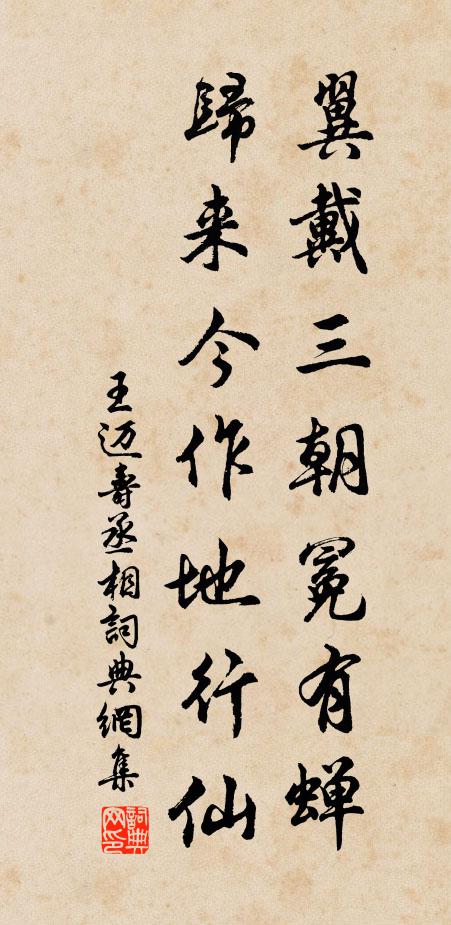 翼戴三朝冕有蝉
歸来今作地行仙
王迈壽丞相詞典網集
詞典网印